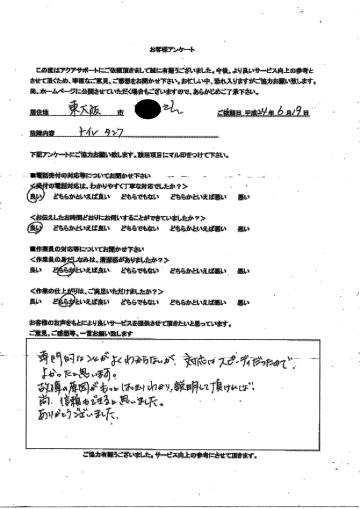 お客様アンケート
この度はアクアサポートにご依頼頂きまして誠に有難うございました。今後、より良いサービス向上の参考と
させて頂くため、率直なご意見、ご感想をお聞かせ下さい。お忙しい中、恐れ入りますがご協力お願い致します。
尚、ホームページに公開させていただく場合もございますので、あらかじめご了承下さい。
居住地 東大阪 市 さん ご依頼日 平成24年6月19日
故障内容 トイレタンク
下記アンケートにご協力お願い致します。該当項目にマル印をつけて下さい。
■電話受付の対応等についてお聞かせ下さい
<受付の電話対応は、わかりやすく丁寧な対応でしたか?>
良い どちらかといえば良い どちらでもない どちらかといえば悪い 悪い
<お伝えしたお時間どおりにお伺いすることができていましたか?>
良い どちらかといえば良い どちらでもない どちらかといえば悪い 悪い
■作業員の対応等についてお聞かせ下さい
<作業員の身だしなみは、清潔感がありましたか?>
良い どちらかといえば良い どちらでもない どちらかといえば悪い 悪い
<作業の仕上がりは、ご満足いただけましたか?>
良い どちらかといえば良い どちらでもない どちらかといえば悪い 悪い
お客様のお声をもとにより良いサービスを提供させて頂きたいと思っています。
ご意見、ご感想等、一言お願い致します
専門的なことがよくわからないが、対応はスピーディだったので
よかったと思います。
故障の原因がもっとはっきりわかり、説明して頂ければ
尚、信頼もできると思いました。
ありがとうございました。
ご協力有難うございました。サービス向上の参考にさせて頂きます。